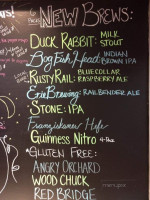 NEW BREWS:
DUCK RABBIT: MILK
STOUT
Dog Fish Head: INDIAN
BROWN IPA
RUSTY RAIL: BLUE COLLAR
RASPBERRY ALE
Erie Brewing: RAILBENDER ALE
STONE: IPA
Franziskaner Hefe
GUINNESS NITRO
GLUTEN FREE:
ANGRY ORCHARD
WOOD CHUCK
RED BRIDGE